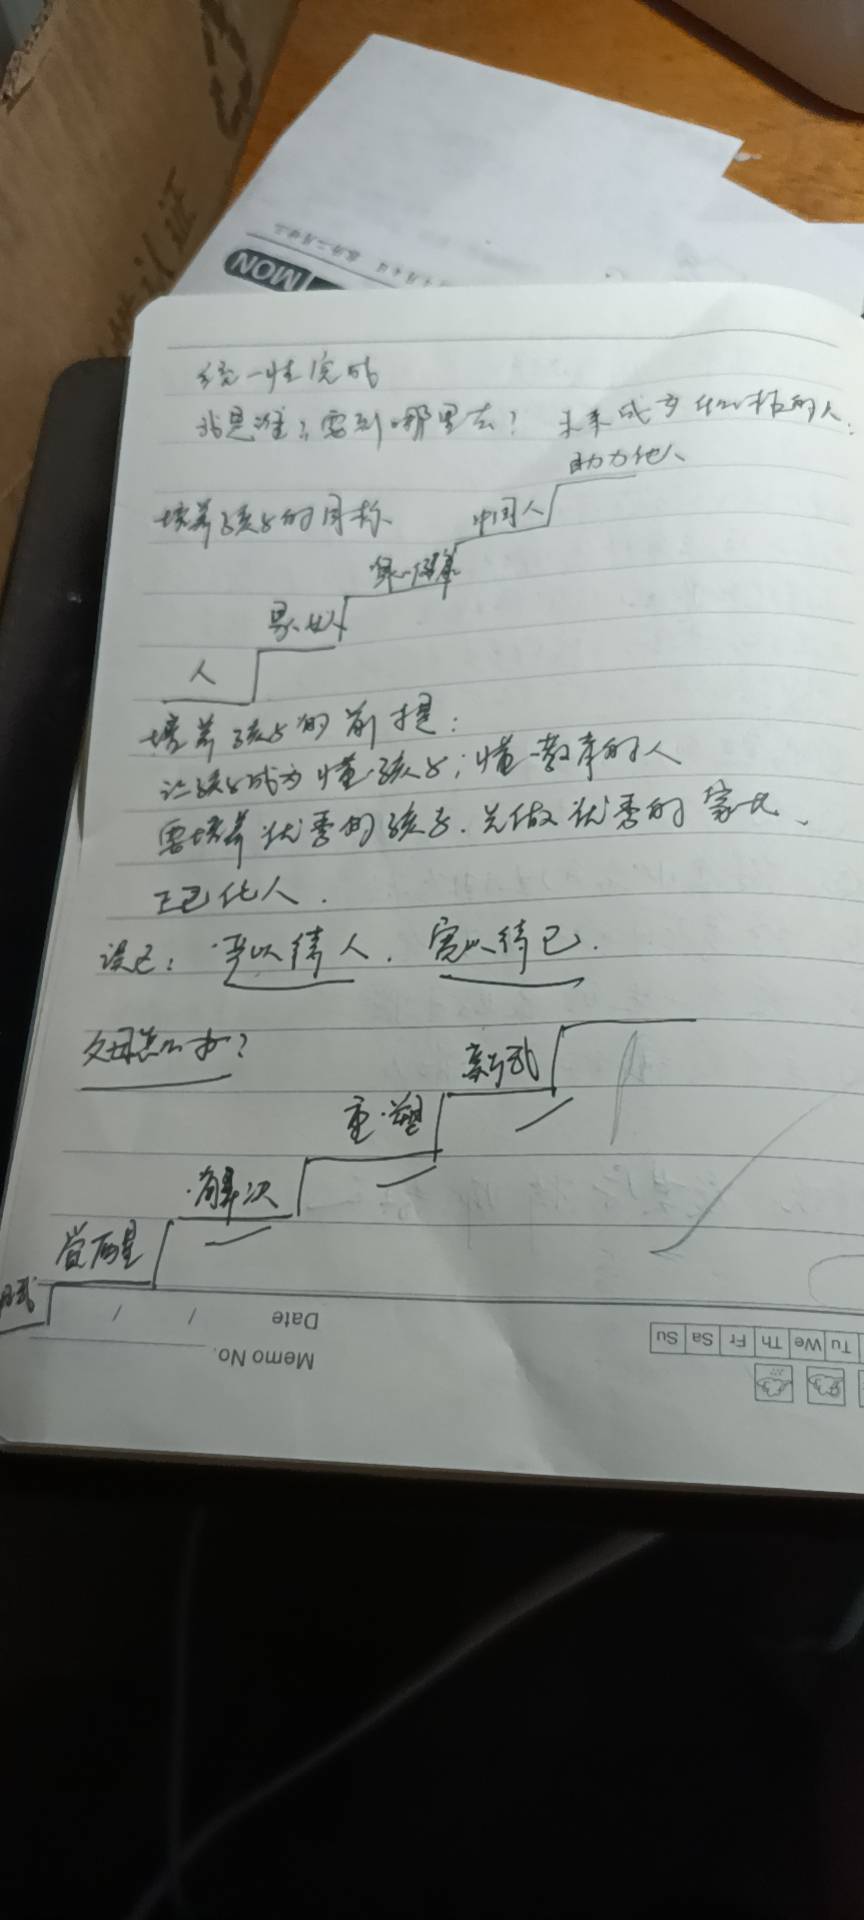 MON
统一性完成
我是谁？要到哪里去？未来成为什么样的人.
助力他人
培养孩子的目标
中国人
身心健康
男、女
人
培养孩子的前提：
让孩子成为懂孩子；懂教育的人
要培养优秀的孩子.先做优秀的家长、
正己化人.
误区：严以待人.宽以待己.
父母怎么办？
新我
重塑
解决
觉醒
Date / /
Memo No.
Tu We Th Fr Sa Su